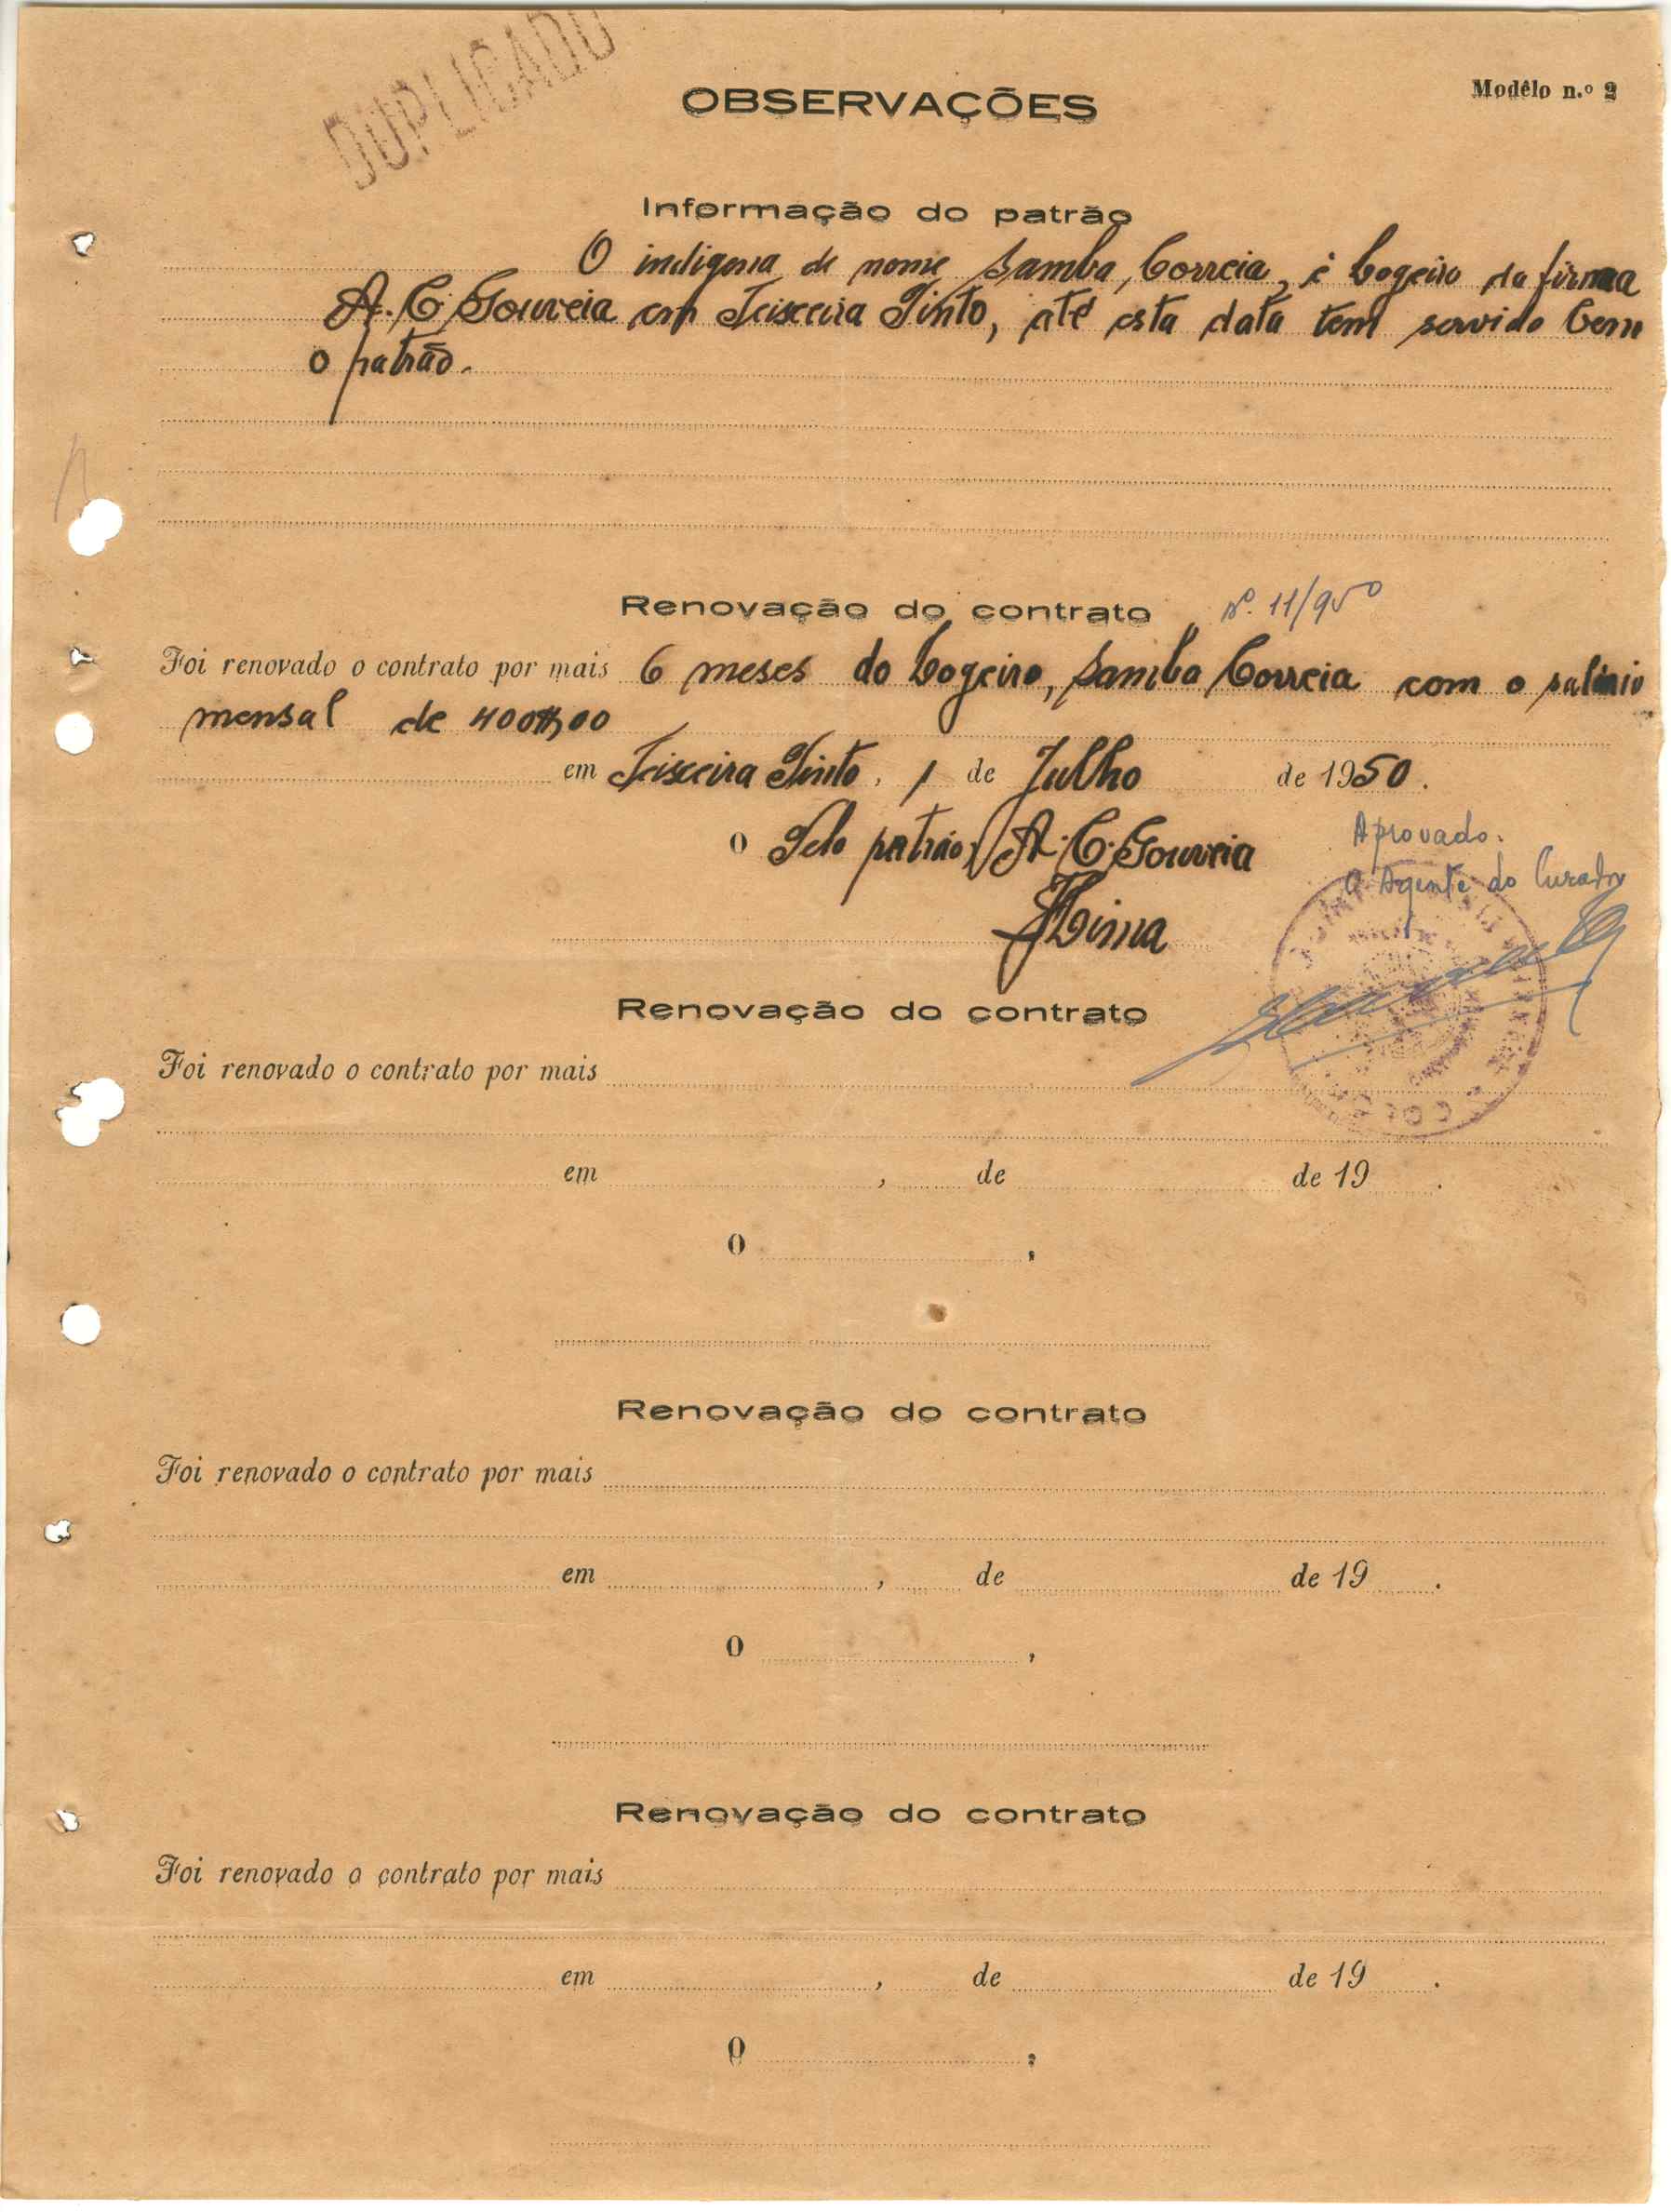 DUPLICADO
OBSERVAÇÕES
Modêlo n.º 2
Informação do patrão
O indigena de nome Samba Correia, é Cogeiro da firma
A. C. Gouveia em Teixeira Pinto, até esta data tem servido bem
o patrão.
Renovação do contrato nº. 11/950
Foi renovado o contrato por mais 6 meses do Cogeiro, Samba Correia com o salário
mensal de 400$00
em Teixeira Pinto, 1 de Julho de 1950.
O Pelo patrão, A. C. Gouveia
Aprovado.
O Agente do Curador
Lima
Renovação do contrato
Foi renovado o contrato por mais
em , de de 19 .
O ,
Renovação do contrato
Foi renovado o contrato por mais
em , de de 19 .
O ,
Renovação do contrato
Foi renovado o contrato por mais
em , de de 19 .
O ,